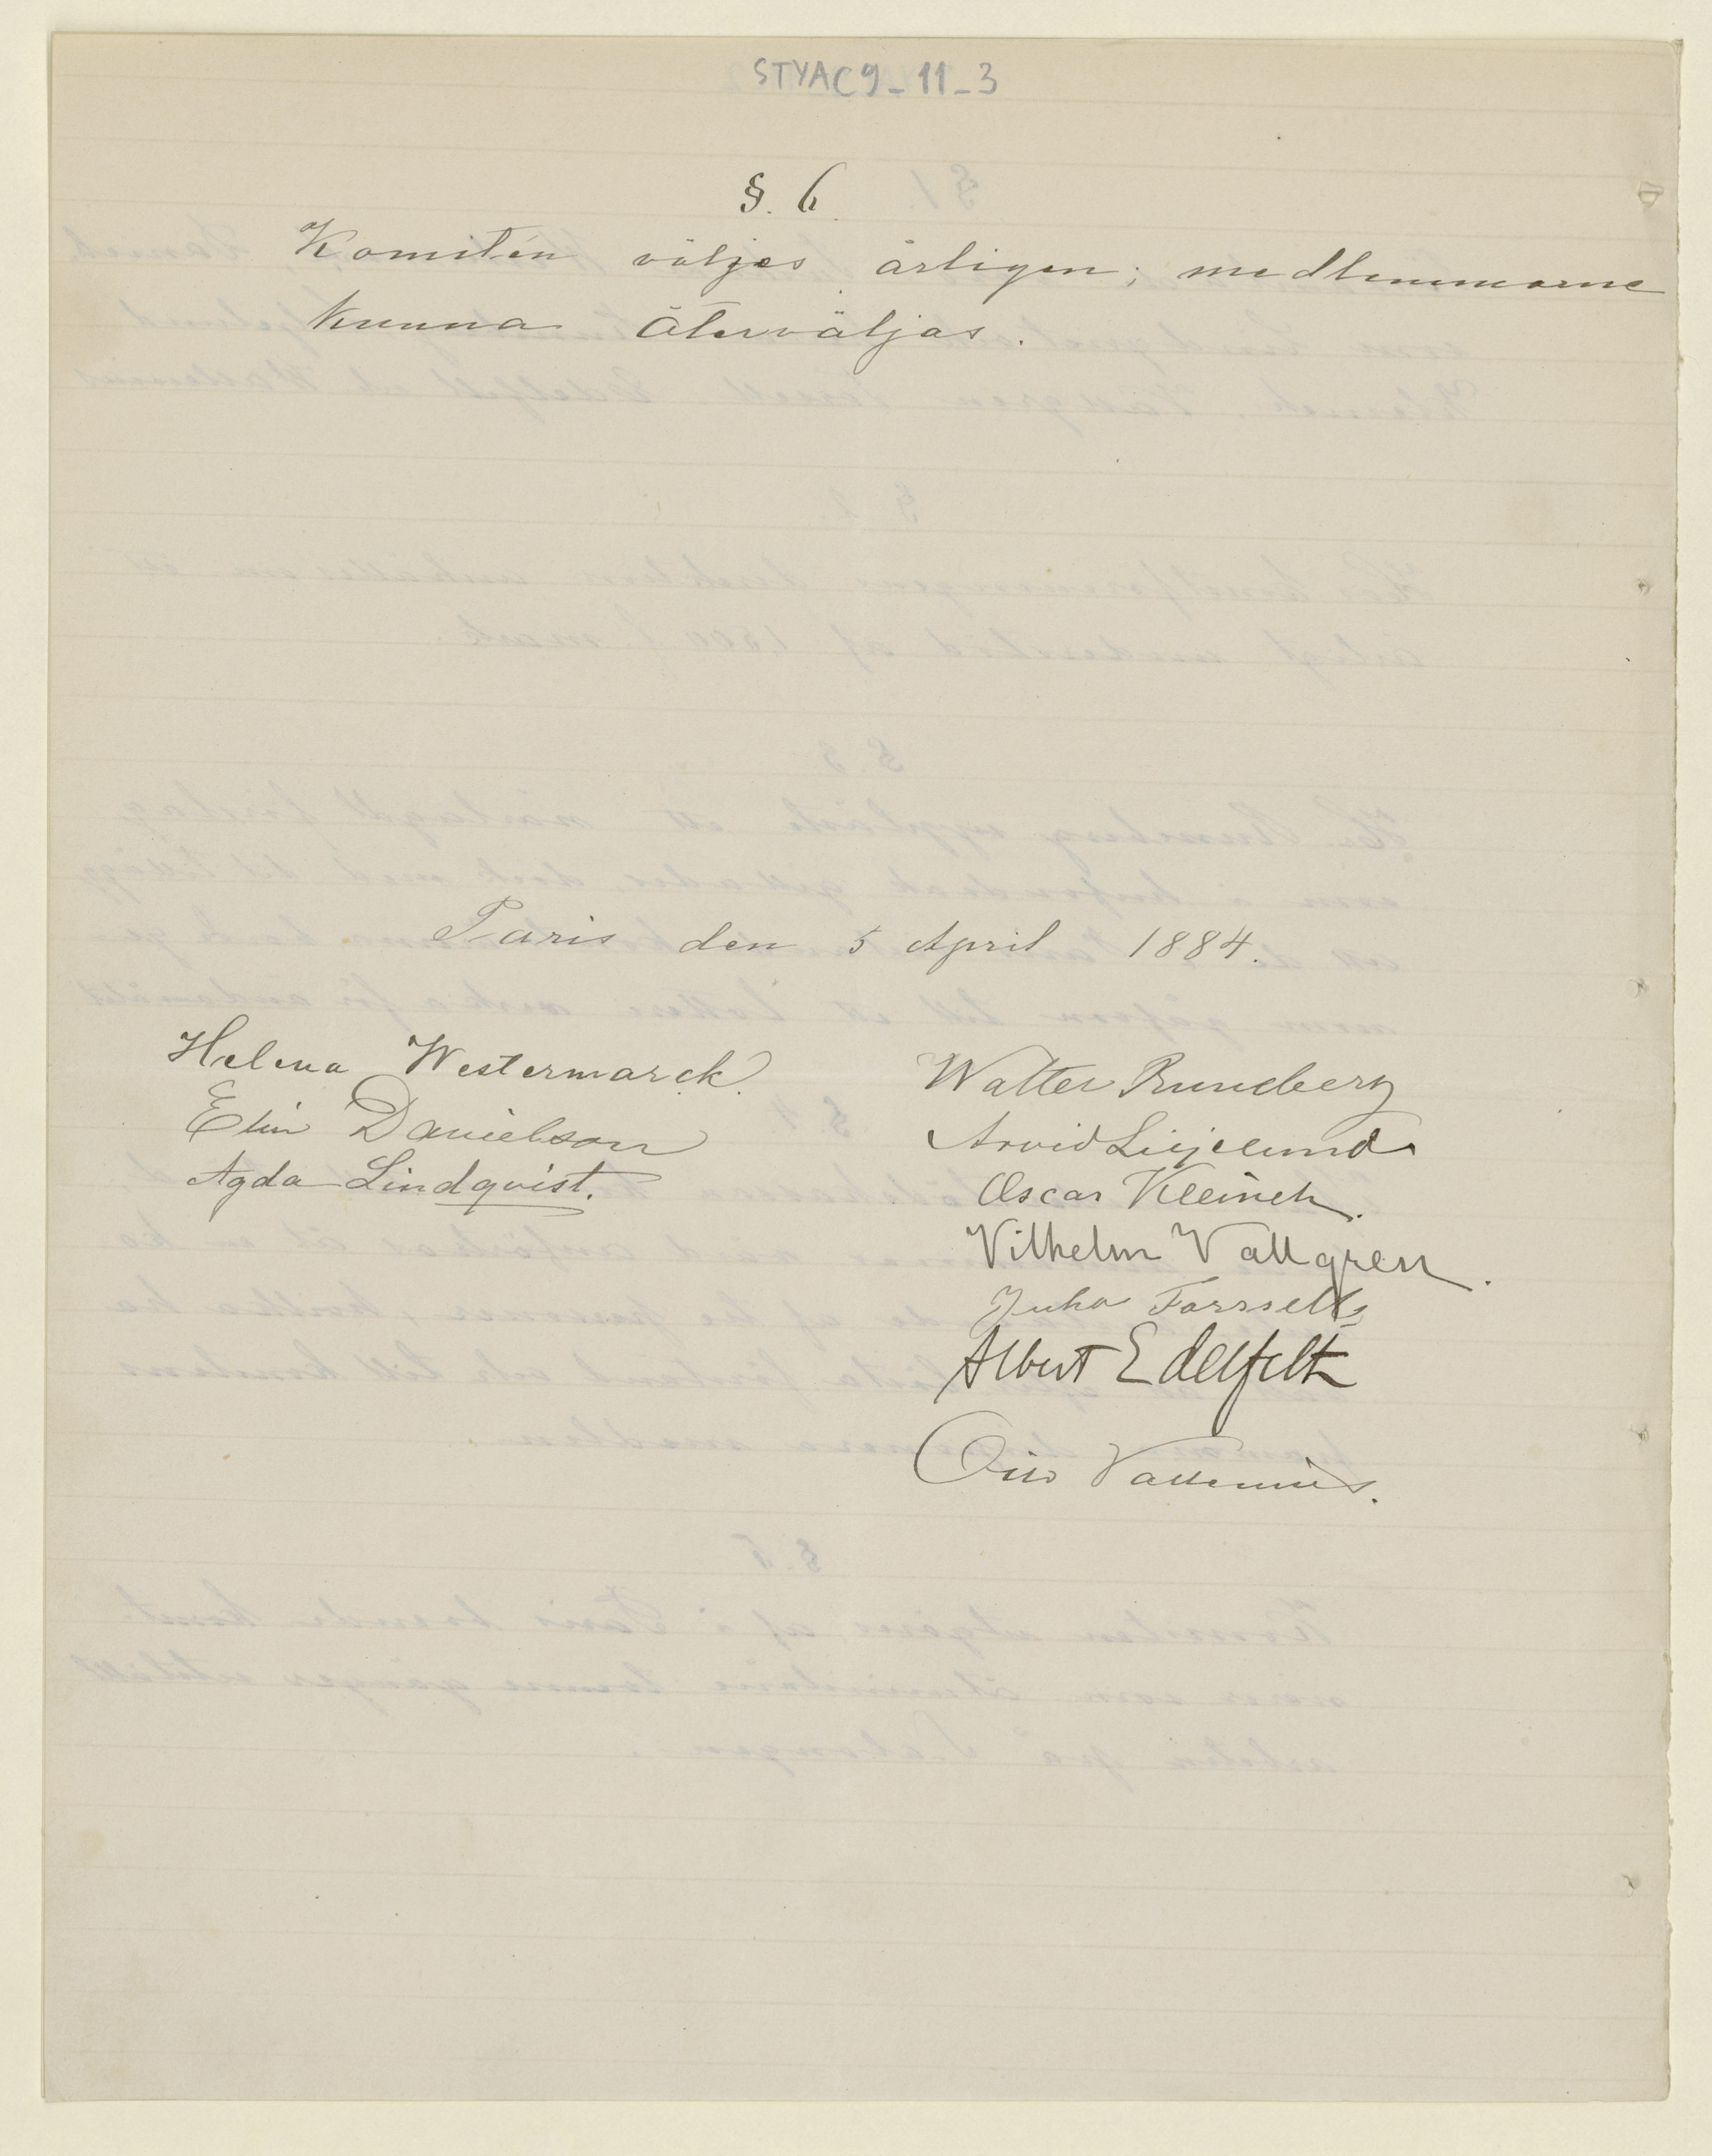 STYAC9_11_3
§. 6.
Komitén väljes årligen; medlemmarne
kunna återväljas.
Paris den 5 April 1884.
Helena Westermarck.
Elin Danielson
Agda Lindqvist.
Walter Runeberg
Arvid Liljelund
Oscar Kleineh.
Vilhelm Vallgren.
Juho Forssell
Albert Edelfelt
Otto Vallenius.